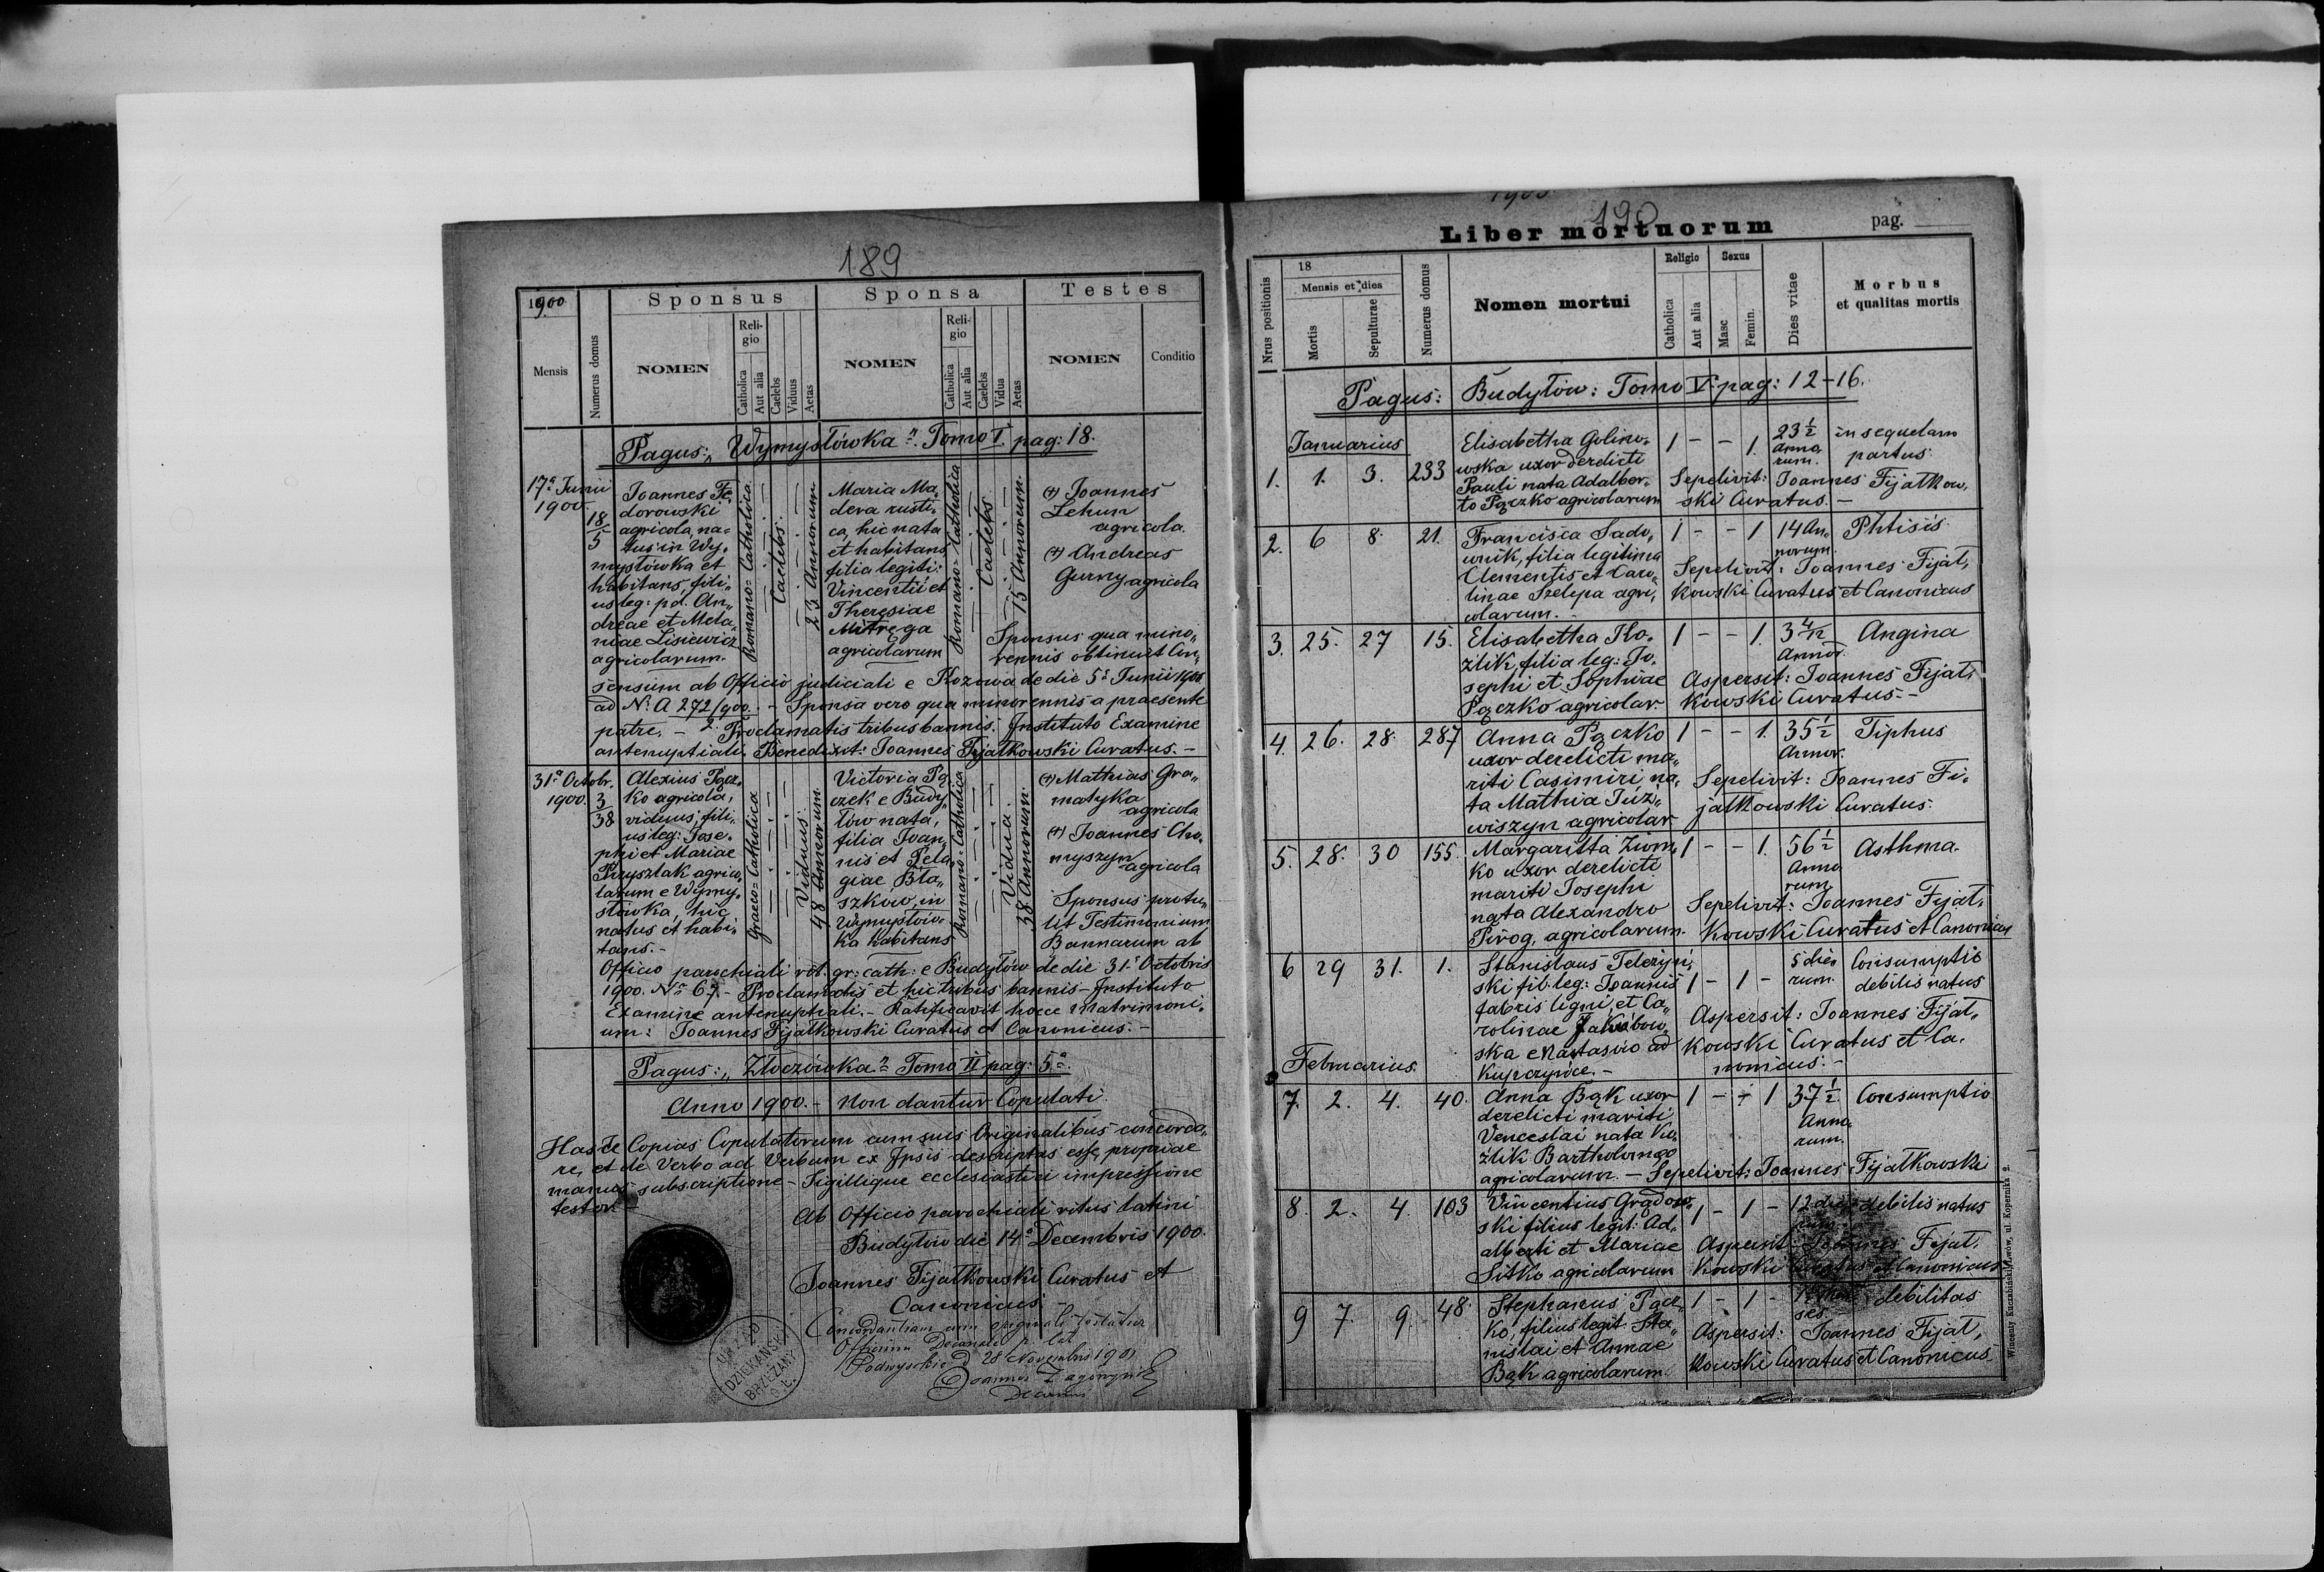 189
1900
Mensis
Numerus domus
Sponsus
NOMEN
Reli-
gio
Catholica
Aut alia
Caelebs
Viduus
Aetas
Sponsa
NOMEN
Reli-
gio
Catholica
Aut alia
Caelebs
Vidua
Aetas
Testes
NOMEN
Conditio
Pagus: "Wymysłówka" Tomo I pag: 18.
17ª Junii
1900
18
5
Joannes Fe,
dorowski
agricola, na=
tus in Wy,
mysłówka et
habitans, fili,
us leg: pd. An,
dreae et Mela,
niae Lisiewicz
agricolarum.
Romano=Catholica
Caelebs
23 Annorum
Maria Ma,
dera rusti,
ca, hic nata
et habitans
filia legiti:
Vincentii et
Theresiae
Mitręga
agricolarum
Romano=Catholica
Caelebs
15 Annorum
(+) Joannes
Lehun
agricola.
(+) Andreas
Gurny agricola
Sponsus qua mino,
rennis obtinuit Con,
sensum ab Officio judiciali e Kozowa de die 5ª Junii 1900
ad Nº: A 272/900. - Sponsa vero qua minorennis a praesente
patre. - 2. Proclamatis tribus bannis. Instituto Examine
antenuptiali. Benedixit: Joannes Fijałkowski Curatus. -
31ª Octobr.
1900.
3
38
Alexius Pącz,
ko agricola,
viduus, fili,
us leg: Jose,
phi et Mariae
Przysztak agrico,
larum e Wymy,
słówka, hic
natus et habi,
tans. -
Graeco=Catholica
Viduus
48 Annorum
Victoria Pą,
czek e Budy,
łów nata,
filia Joan,
nis et Pela,
giae Bła,
szków, in
Wymysłów,
ka habitans
Romano=Catholica
Vidua
38 Annorum
(+) Mathias Gra,
matyka
agricola
(+) Joannes Cho,
myszyn
agricola
Sponsus protu,
lit Testimonium
Bannorum ab
Officio parochiali rit. gr: cath: e Budyłów de die 31ª Octobris
1900. Nº 67. - Proclamatis et hic tribus bannis - Instituto
Examine antenuptiali. - Ratificavit hocce Matrimoni,
um: Joannes Fijałkowski Curatus et Canonicus. -
Pagus: "Złoczówka" Tomo II pag: 5ª.
Anno 1900. - Non dantur Copulati.
Hasce Copias Copulatorum cum suis Originalibus concorda,
re, et de Verbo ad Verbum ex Ipsis descriptas esse, propriae
manus subscriptione - Sigillique ecclesiastici impressione
testor. -
Ab Officio parochiali ritus latini
Budyłów die 14ª Decembris 1900.
Joannes Fijałkowski Curatus et
Canonicus
Concordantiam cum originali testatur
Officium Decanale r. lat
Podwysokie 28 Novembris 1901
Joannes
Decanus
DZIEKAŃSKI
BRZEŻANY
190
Liber mortuorum
pag.
Nrus positionis
18
Mensis et dies
Mortis
Sepulturae
Numerus domus
Nomen mortui
Religio
Catholica
Aut alia
Sexus
Masc
Femin.
Dies vitae
Morbus
et qualitas mortis
Pagus: Budyłów: Tomo V pag: 12-16.
Januarius
1. 1. 3. 233
Elisabetha Golino,
wska uxor derelicti
Pauli nata Adalber,
to Pączko agricolarum
1 - - 1. 23½
Anno
rum.
in sequelam
partus.
Sepelivit: Joannes Fijałkow,
ski Curatus. -
2. 6 8. 21.
Francisca Sado,
wnik, filia legitima
Clementis et Caro,
linae Szelepa agri,
colarum. -
1 - - 1 14 An,
norum.
Phtisis
Sepelivit: Joannes Fijał,
kowski Curatus et Canonicus
3. 25. 27 15.
Elisabetha Ko,
zlik, filia leg: Jo,
sephi et Sophiae
Pączko agricolar.
1 - - 1. 3 4/12
Annor.
Angina
Aspersit: Joannes Fijał,
kowski Curatus. -
4. 26. 28. 287
Anna Pączko
uxor derelicti ma,
riti Casimiri na,
ta Mathia Juź,
wiszyn agricolar
1 - - 1. 35½
Annor.
Tiphus
Sepelivit: Joannes Fi,
jałkowski Curatus.
5. 28. 30 155.
Margaritta Ziom,
ko uxor derelicti
mariti Josephi
nata Alexandro
Piróg, agricolarum.
1 - - 1. 56½
Anno
rum
Asthma.
Sepelivit: Joannes Fijał,
kowski Curatus et Canonicus
6 29 31. 1.
Stanislaus Teleżyń,
ski fil: leg: Joannis
fabris ligni, et Ca,
rolinae Jakubow,
ska e Nastasów ad
Kupczyńce. -
1 - 1 - 5 die
rum.
Consumptio
debilis natus
Aspersit: Joannes Fijał,
kowski Curatus et Ca,
nonicus. -
Februarius.
7. 2. 4. 40.
Anna Bąk uxor
derelicti mariti
Venceslai nata Ko,
zlik Bartholomaeo
agricolarum. - Sepelivit: Joannes Fijałkowski
1 - - 1 37½
Anno,
rum.
Consumptio
8. 2. 4. 103
Vincentius Grądow,
ski filius legit: Ad,
alberti et Mariae
Sitko agricolarum
1 - 1 - 12 die
rum
debilis natus
Aspersit: Joannes Fijał,
kowski Curatus et Canonicus
9 7. 9. 48.
Stephanus Pącz,
ko, filius legit. Sta,
nislai et Annae
Bąk agricolarum.
1 - 1 -
ses
debilitas
Aspersit: Joannes Fijał,
kowski Curatus et Canonicus
Wincenty Kuczabiński, Lwów, ul. Kopernika 2.